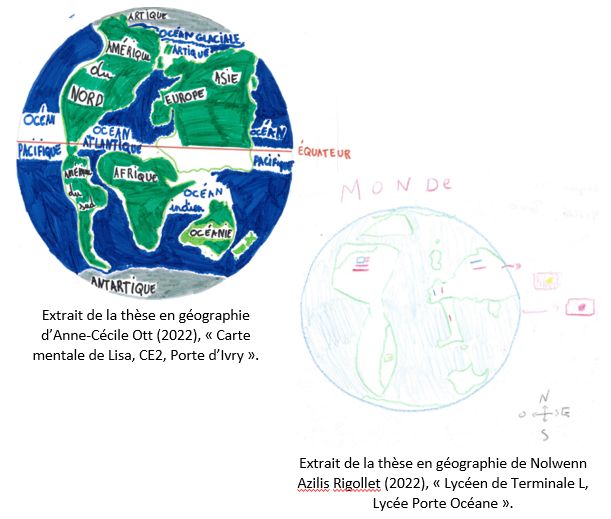 ARTIQUE
OCÉAN GLACIALE
ARTIQUE
AMÉRIQUE
du
NORD
EUROPE
ASIE
OCÉAN
PACIFIQUE
OCEAN
ATLANTIQUE
OCÉAN
PACIFIQUE
ÉQUATEUR
AMÉRI
du
sud
AFRIQUE
OCÉAN
indien
OCÉANIE
ANTARTIQUE
Extrait de la thèse en géographie
d’Anne-Cécile Ott (2022), « Carte
mentale de Lisa, CE2, Porte d’Ivry ».
MONDe
N
O E
S
Extrait de la thèse en géographie de Nolwenn
Azilis Rigollet (2022), « Lycéen de Terminale L,
Lycée Porte Océane ».